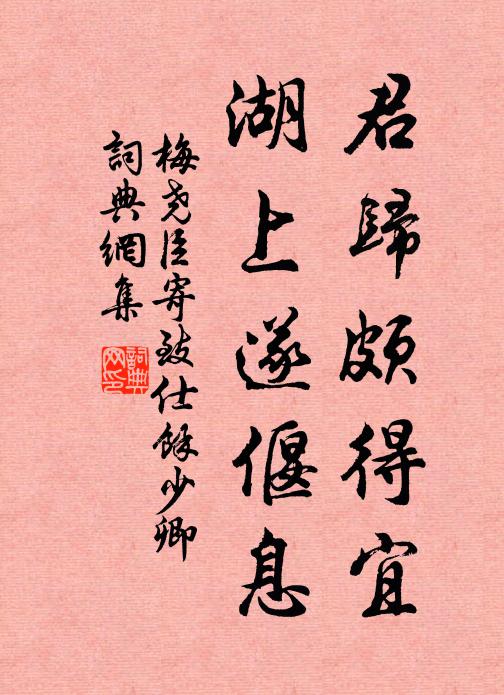 君歸頗得宜
湖上遂偃息
梅尧臣寄致仕餘少卿
詞典網集
詞典網印